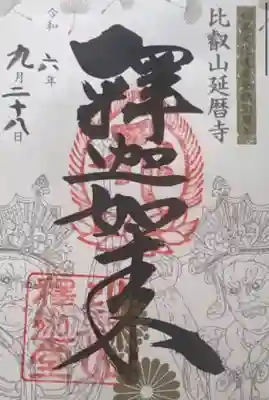 比叡山延暦寺
釋迦如来
釋迦堂
令和六年
九月二十八日